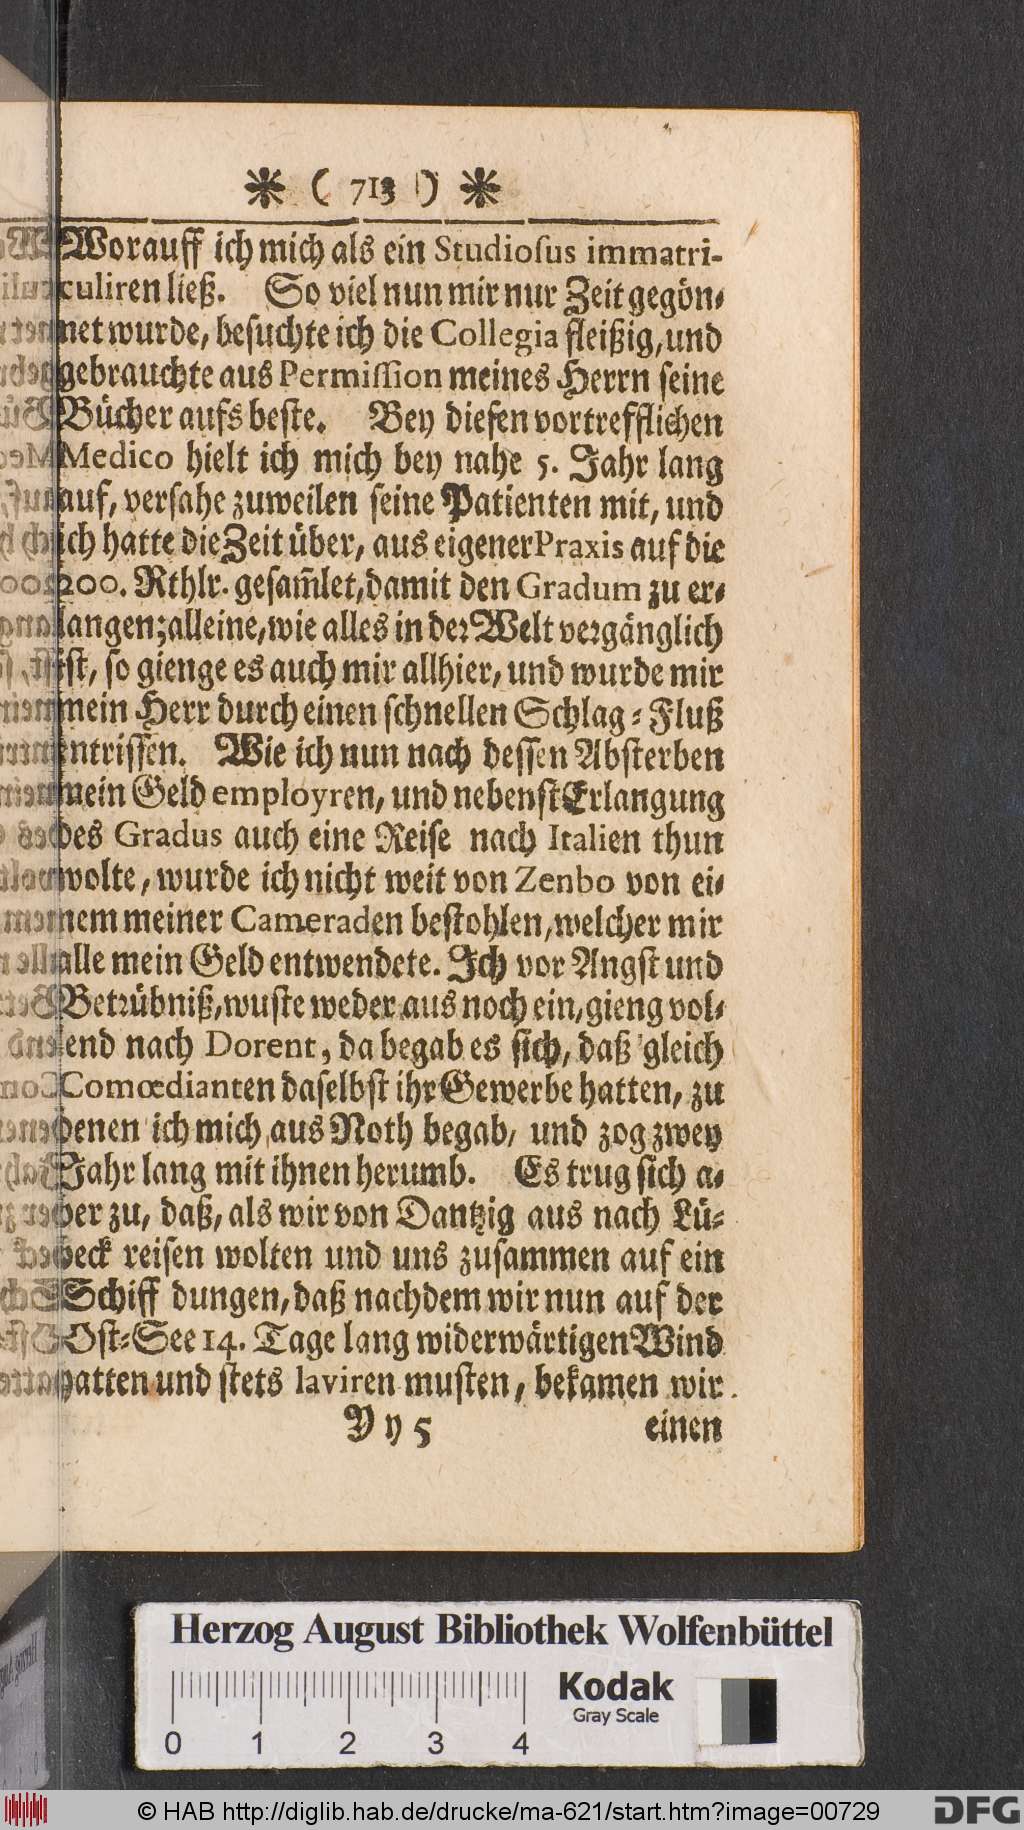 * ( 713 ) *
Worauff ich mich als ein Studiosus immatri-
culiren ließ. So viel nun mir nur Zeit gegön-
net wurde, besuchte ich die Collegia fleißig, und
gebrauchte aus Permission meines Herrn seine
Bücher aufs beste. Bey diesen vortrefflichen
Medico hielt ich mich bey nahe 5. Jahr lang
auf, versahe zuweilen seine Patienten mit, und
ich hatte die Zeit über, aus eigener Praxis auf die
200. Rthlr. gesam̃let, damit den Gradum zu er-
langen; alleine, wie alles in der Welt vergänglich
ist, so gienge es auch mir allhier, und wurde mir
mein Herr durch einen schnellen Schlag-Fluß
entrissen. Wie ich nun nach dessen Absterben
mein Geld employren, und nebenst Erlangung
des Gradus auch eine Reise nach Italien thun
wolte, wurde ich nicht weit von Zenbo von ei-
nem meiner Cameraden bestohlen, welcher mir
alle mein Geld entwendete. Ich vor Angst und
Betrübniß, wuste weder aus noch ein, gieng vol-
lend nach Dorent, da begab es sich, daß gleich
Comœdianten daselbst ihr Gewerbe hatten, zu
denen ich mich aus Noth begab, und zog zwey
Jahr lang mit ihnen herumb. Es trug sich a-
ber zu, daß, als wir von Dantzig aus nach Lü-
beck reisen wolten und uns zusammen auf ein
Schiff dungen, daß nachdem wir nun auf der
Ost-See 14. Tage lang widerwärtigen Wind
hatten und stets laviren musten, bekamen wir
Yy 5 einen
Herzog August Bibliothek Wolfenbüttel
Kodak
Gray Scale
0 1 2 3 4
© HAB http://diglib.hab.de/drucke/ma-621/start.htm?image=00729
DFG